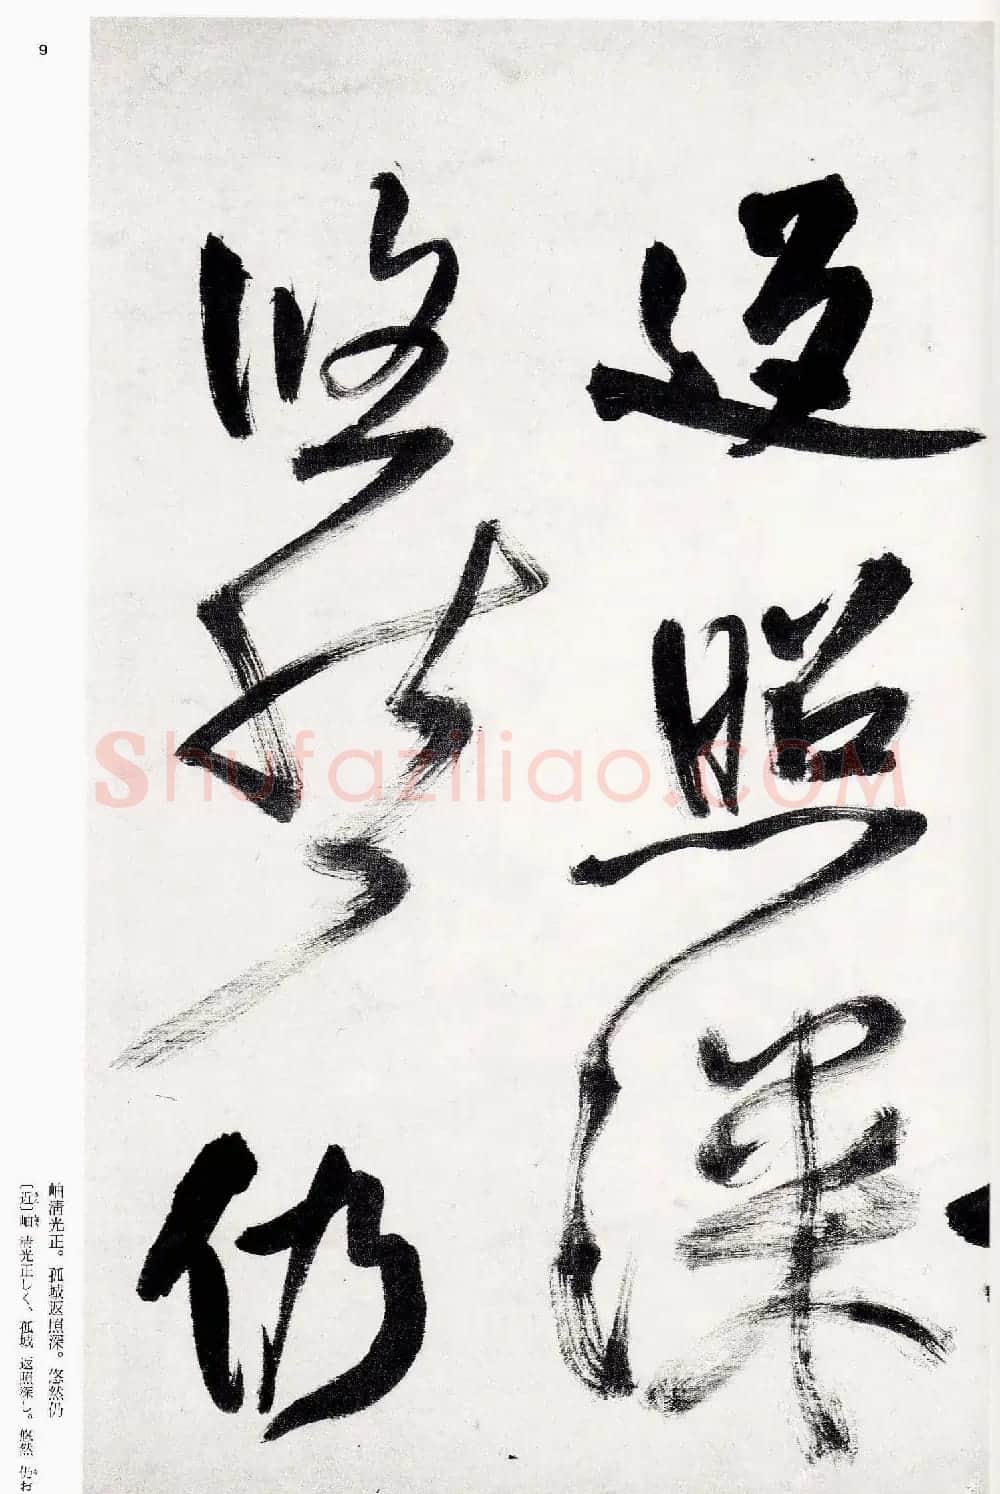 9
返照深
悠然仍
岫淸光正。孤城返照深。悠然仍
〔近〕岫 淸光正しく、孤城 返照深し。悠然 仍お
shufaziliao.COM